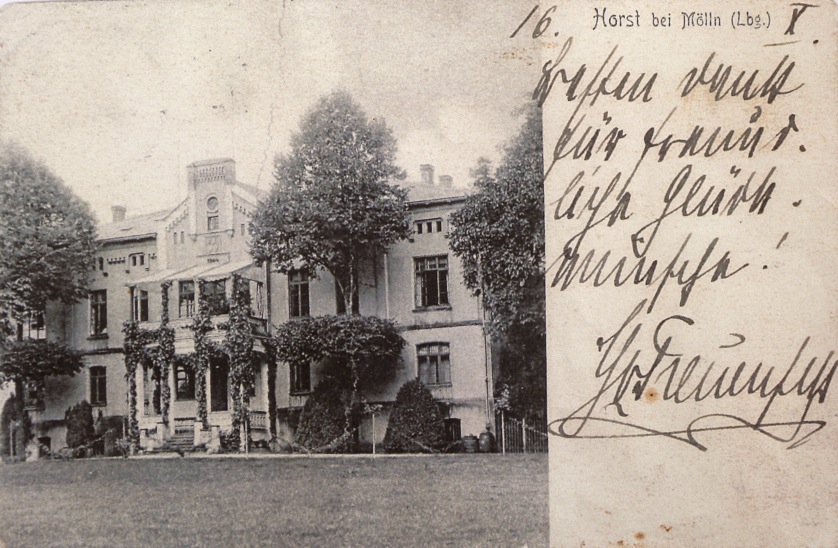 Horst bei Mölln (Lbg.)
16. X.
Besten Dank
für freund.
liche Glück.
wünsche!